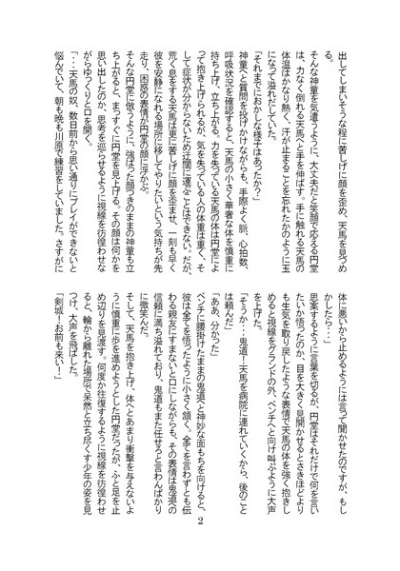 出してしまいそうな程に苦しげに顔を歪め、天馬を見つめ
る。
そんな神童を気遣うように、大丈夫だと笑顔で応える円堂
は、力なく倒れる天馬へと手を伸ばす。手に触れる天馬の
体温はかなり熱く、汗が止まることを忘れたかのように玉
になって溢れだしていた。
「それまでにおかしな様子はあったか？」
神童へと質問を投げかけながらも、手際よく脈、心拍数、
呼吸状況を確認すると、天馬の小さく華奢な体を慎重に
持ち上げ、立ち上がる。力を失っている天馬の体は円堂によ
って抱き上げられるが、気を失っている人の体重は重く、そ
して症状が分からないため迂闊に運ぶことはできない。だが、
荒く息をする天馬は更に苦しげに顔を歪ませ、一刻も早く
彼を安静になれる場所に移してやりたいという気持ちが先
走り、困惑の表情が円堂の顔に浮かぶ。
そんな円堂に倣うように、強ばった顔つきのままの神童も立
ち上がると、まっすぐに円堂を見上げる。その顔は何かを
思い出したのか、思考を巡らせるように視線を彷徨わせな
がらゆっくりと口を開く。
「・・・天馬の奴、数日前から思い通りにプレイができないと
悩んでいて、朝も晩も川原で練習をしていました。さすがに
体に悪いから止めるようには言って聞かせたのですが、もし
かしたら・・・」
思案するように言葉を切るが、円堂はそれだけで何を言い
たいか悟ったのか、目を大きく見開かせるとさきほどより
も生気を取り戻したような表情で天馬の体を強く抱きし
めると視線をグランドの外、ベンチへと向け叫ぶように大声
を上げた。
「そうか…鬼道！天馬を病院に連れていくから、後のこと
は頼んだ」
「ああ、分かった」
ベンチに腰掛けたままの鬼道へと神妙な面もちを向けると、
彼は全てを悟ったように小さく頷く。全てを言わずとも伝
わる親友にすまないと口にしながらも、その表情は鬼道への
信頼に満ち溢れており、鬼道もまた任せろと言わんばかり
に微笑んだ。
そして、天馬を抱き上げ、体へとあまり衝撃を与えないよ
うに慎重に歩を進めようとした円堂だったが、ふと足を止
め辺りを見渡す。何度か往復するように視線を彷徨わせ
ると、輪から離れた場所で呆然と立ち尽くす少年の姿を見
つけ、大声を飛ばした。
「剣城！お前も来い！」
2